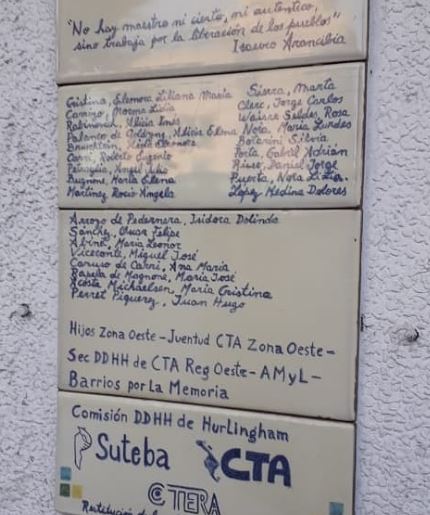 "No hay maestro ni cierto, ni auténtico,
sino trabaja por la liberación de los pueblos"
Isauro Arancibia
Cristina, Eleonora Liliana María
Carreño, Norma Lidia
Rabinovich, Alicia Inés
Palanco de Alicia Elena
Eleonora
Carri, Roberto Eugenio
Petraglia, Angel Julio
Bugnone, María Elena
Martinez Rocío Angela
Sierra, Marta
Clerc, Jorge Carlos
Rosa
Nora, María Lurdes
Silvia
Porta, Gabriel Adrián
Daniel Jorge
Puerta, Nora Lilian
López Medina Dolores
Arroyo de Pedernera, Isidora Dolinda
Sánchez, Oscar Felipe
Abinet, María Leonor
Viceconte, Miguel José
Caruso de Carri, Ana María
Rapella de Magnone, María José
Acosta Michaelsen, María Cristina
Perret Piguerez, Juan Hugo
Hijos Zona Oeste - Juventud CTA Zona Oeste -
Sec DDHH de CTA Reg Oeste - AMyL -
Barrios por La Memoria
Comisión DDHH de HurLingham
Suteba CTA
CTERA